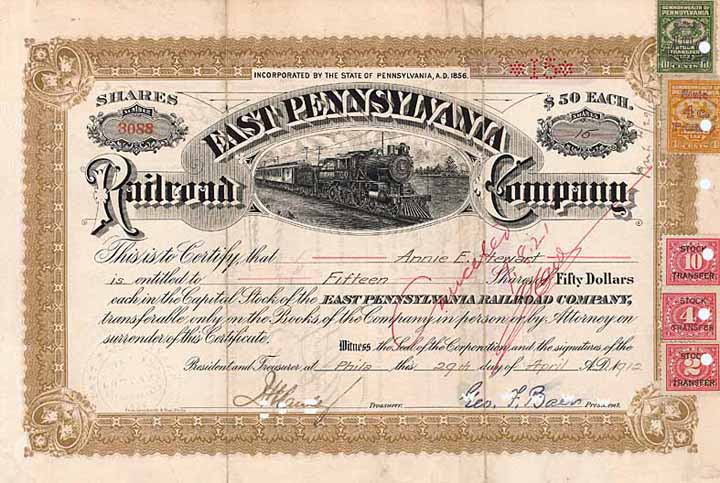 INCORPORATED BY THE STATE OF PENNSYLVANIA, A.D. 1856.
*15*
SHARES
$50 EACH.
NUMBER
3088
SHARES
15
EAST PENNSYLVANIA
Railroad Company
This is to Certify that Annie E. Stewart
is entitled to Fifteen Shares of Fifty Dollars
each in the Capital Stock of the EAST PENNSYLVANIA RAILROAD COMPANY,
transferable only on the Books of the Company in person or by Attorney on
surrender of this Certificate.
Witness the Seal of the Corporation and the signatures of the
President and Treasurer at Phila this 29th day of April A.D. 1912
Treasurer.
Geo. F. Baer
President.
Cancelled
COMMONWEALTH OF
PENNSYLVANIA
STOCK
TRANSFER
10 CENTS 10
4
4 CENTS 4
STOCK
10
TRANSFER
STOCK
4
TRANSFER
STOCK
2
TRANSFER